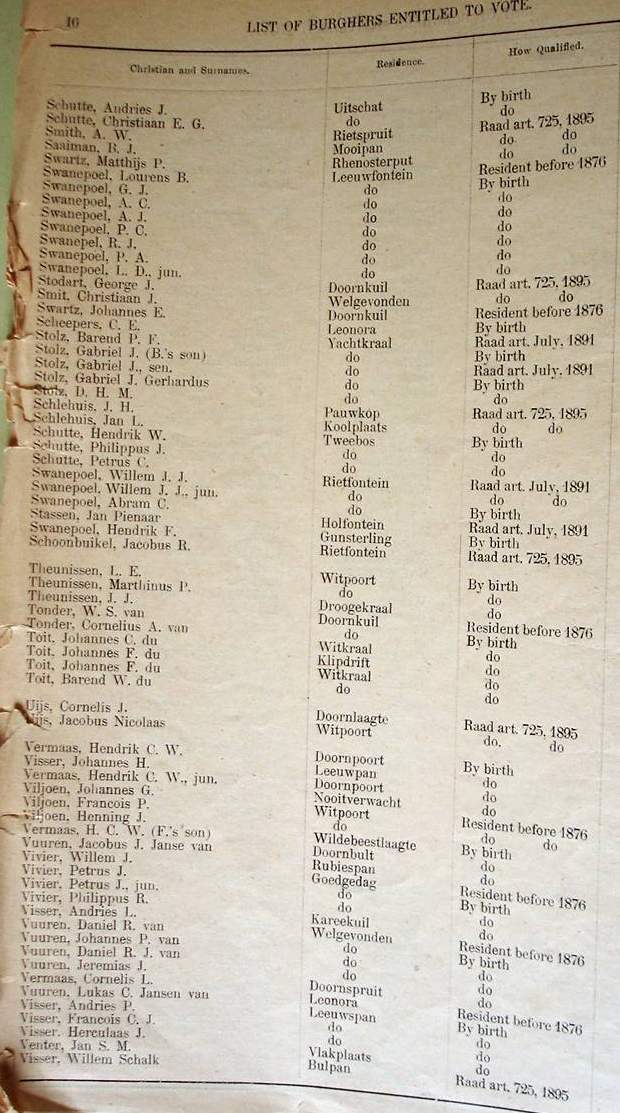 16 LIST OF BURGHERS ENTITLED TO VOTE.
Christian and Surnames. Residence. How Qualified.
Schutte, Andries J. Uitschat By birth
Schutte, Christiaan E. G. do do
Smith, A. W. Rietspruit Raad art. 725, 1895
Saaiman, B. J. Mooipan do do
Swartz, Matthijs P. Rhenosterput do do
Swanepoel, Lourens B. Leeuwfontein Resident before 1876
Swanepoel, G. J. do By birth
Swanepoel, A. C. do do
Swanepoel, A. J. do do
Swanepoel, P. C. do do
Swanepel, R. J. do do
Swanepoel, P. A. do do
Swanepoel, L. D., jun. do do
Stodart, George J. Doornkuil Raad art. 725, 1895
Smit, Christiaan J. Welgevonden do do
Swartz, Johannes E. Doornkuil Resident before 1876
Scheepers, C. E. Leonora By birth
Stolz, Barend P. F. Yachtkraal Raad art. July, 1891
Stolz, Gabriel J. (B.'s son) do By birth
Stolz, Gabriel J., sen. do Raad art. July, 1891
Stolz, Gabriel J. Gerhardus do By birth
Stolz, D. H. M. do do
Schlehuis, J. H. Pauwkop Raad art. 725, 1895
Schlehuis, Jan L. Koolplaats do do
Schutte, Hendrik W. Tweebos By birth
Schutte, Philippus J. do do
Schutte, Petrus C. do do
Swanepoel, Willem J. J. Rietfontein Raad art. July, 1891
Swanepoel, Willem J. J., jun. do do do
Swanepoel, Abram C. do By birth
Stassen, Jan Pienaar Holfontein Raad art. July, 1891
Swanepoel, Hendrik F. Gunsterling By birth
Schoonbuikel, Jacobus R. Rietfontein Raad art. 725, 1895
Theunissen, L. E. Witpoort By birth
Theunissen, Marthinus P. do do
Theunissen, J. J. Droogekraal do
Tonder, W. S. van Doornkuil Resident before 1876
Tonder, Cornelius A. van do By birth
Toit, Johannes C. du Witkraal do
Toit, Johannes F. du Klipdrift do
Toit, Johannes F. du Witkraal do
Toit, Barend W. du do do
Uijs, Cornelis J. Doornlaagte Raad art. 725, 1895
Uijs, Jacobus Nicolaas Witpoort do. do
Vermaas, Hendrik C. W. Doornpoort By birth
Visser, Johannes H. Leeuwpan do
Vermaas, Hendrik C. W., jun. Doornpoort do
Viljoen, Johannes G. Nooitverwacht do
Viljoen, Francois P. Witpoort Resident before 1876
Viljoen, Henning J. do do do
Vermaas, H. C. W. (F.'s son) Wildebeestlaagte By birth
Vuuren, Jacobus J. Janse van Doornbult do
Vivier, Willem J. Rubiespan do
Vivier, Petrus J. Goedgedag Resident before 1876
Vivier, Petrus J., jun. do By birth
Vivier, Philippus R. do do
Visser, Andries L. Kareekuil do
Vuuren, Daniel R. van Welgevonden Resident before 1876
Vuuren, Johannes P. van do By birth
Vuuren, Daniel R. J. van do do
Vuuren, Jeremias J. do do
Vermaas, Cornelis L. Doornspruit do
Vuuren, Lukas C. Jansen van Leonora Resident before 1876
Visser, Andries P. Leeuwspan By birth
Visser, Francois C. J. do do
Visser, Herculaas J. do do
Venter, Jan S. M. Vlakplaats do
Visser, Willem Schalk Bulpan Raad art. 725, 1895